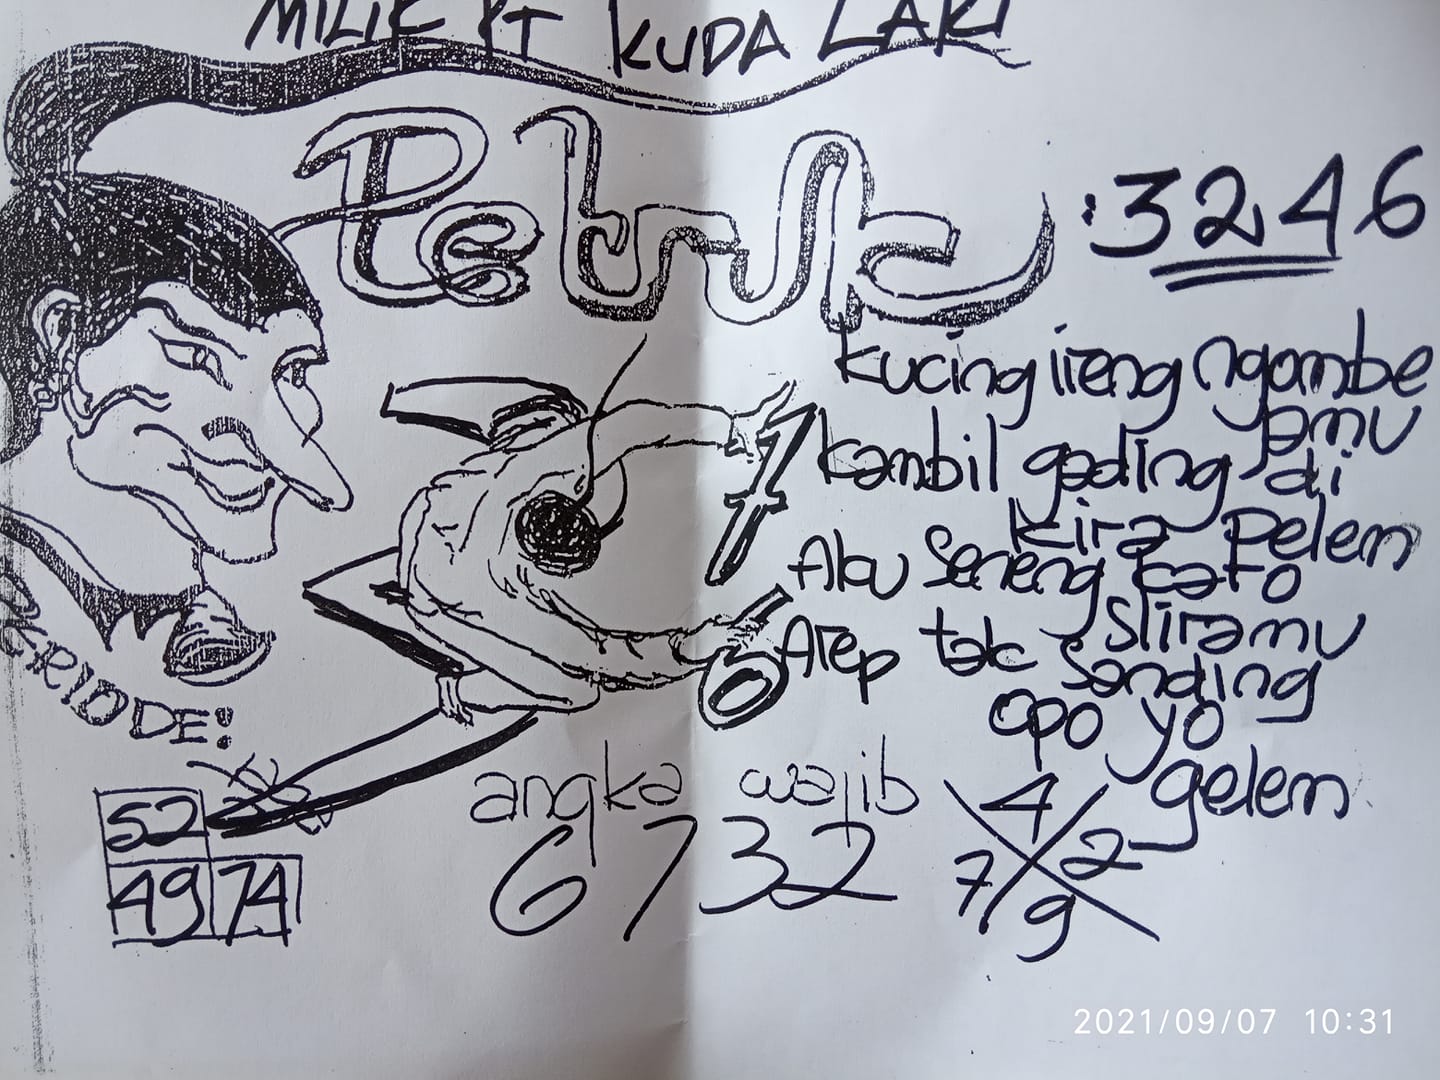 MILIK PT KUDA LAKI
Petruk
: 3246
kucing ireng ngombe
jamu
kambil gading di
kira pelem
Aku Seneng karo
Sliramu
Arep tak Sanding
opo yo
gelem
7
1
6
PRIODE:
52
49 74
angka wajib
6732
4
7 2
9
2021/09/07 10:31